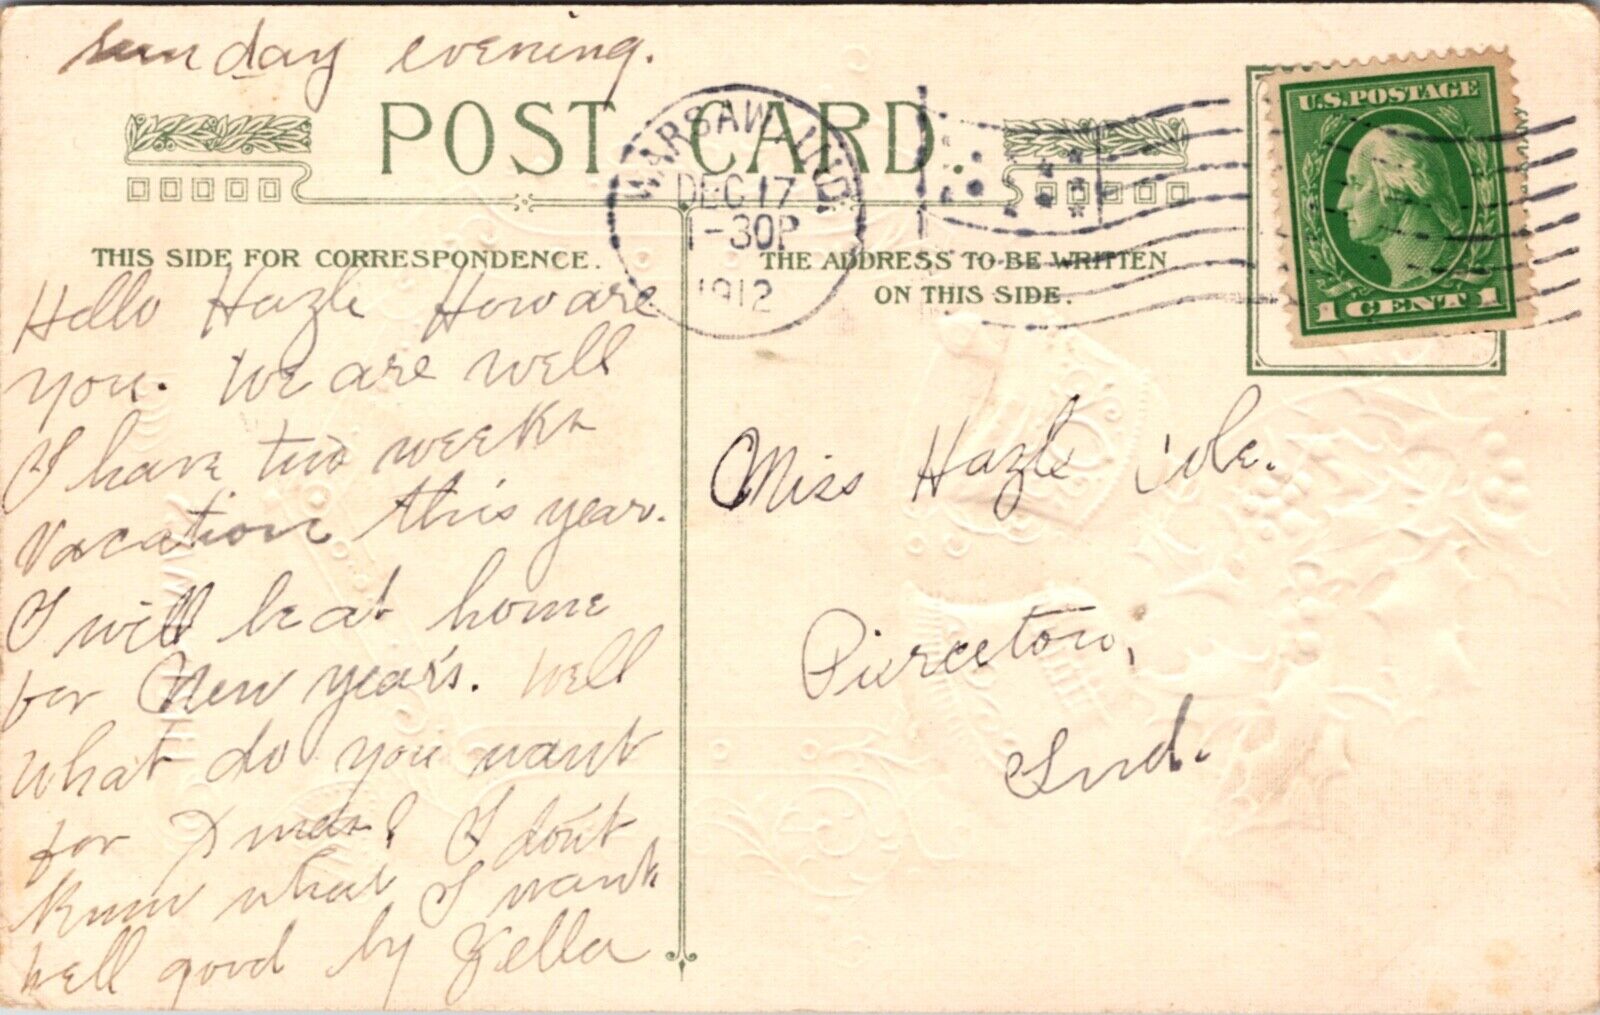 sunday evening.
POST CARD.
WARSAW, IND.
DEC 17
1-30P
1912
U.S. POSTAGE
1 CENT 1
THIS SIDE FOR CORRESPONDENCE.
THE ADDRESS TO BE WRITTEN
ON THIS SIDE.
Hello Hazle How are
you. We are well
I have two weeks
vacation this year.
I will be at home
for New year's. Well
what do you want
for Xmas? I don't
know what I want.
Well good by Zella
Miss Hazle Cole.
Pierceton,
Ind.